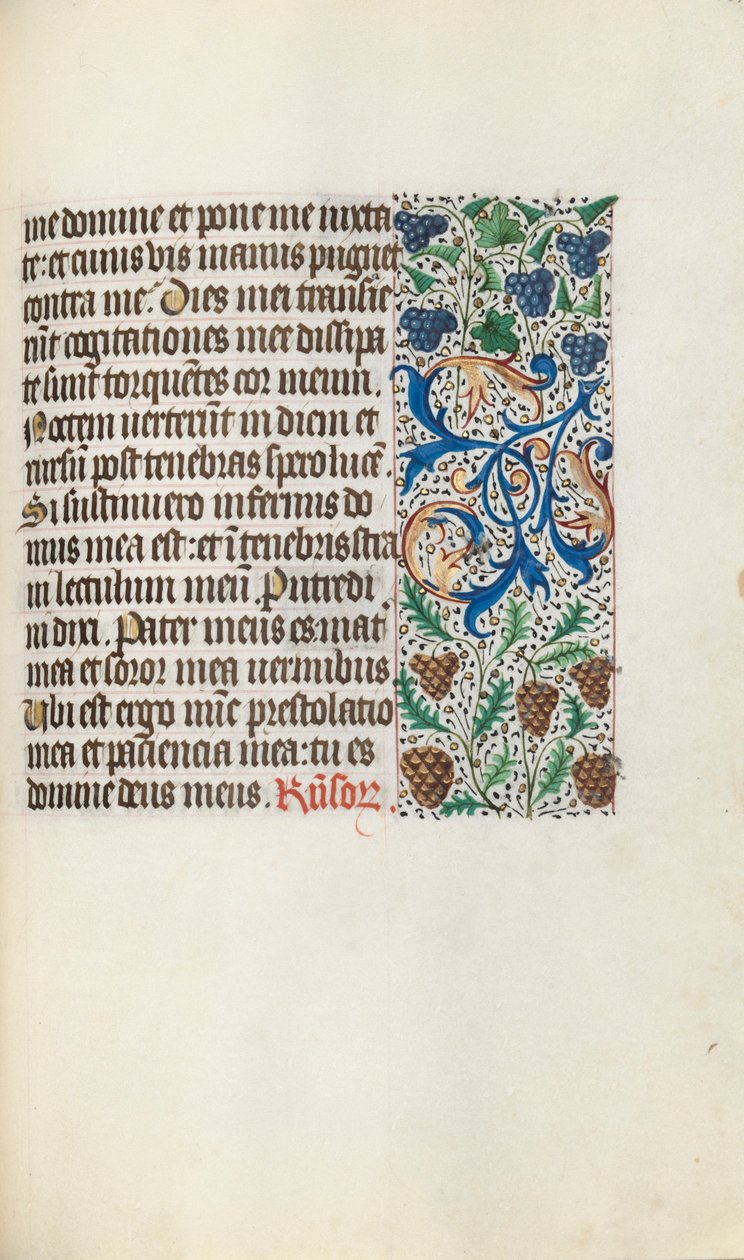 me domine et pone me iuxta
te: et cuiuis vis manus pugnet
contra me. Dies mei transie
rūt cogitationes mee dissipa
te sunt torquētes cor meum.
Noctem uerterūt in diem et
rursū post tenebras spero lucē.
Si sustinuero infernus do
mus mea est: et ī tenebris stra
ui lectulum meū. Putredi
ni dixi. Pater meus es mat
mea et soror mea uermibus
Ubi est ergo nūc prestolatio
mea et paciencia mea: tu es
domine deus meus. R̄usorꝫ.